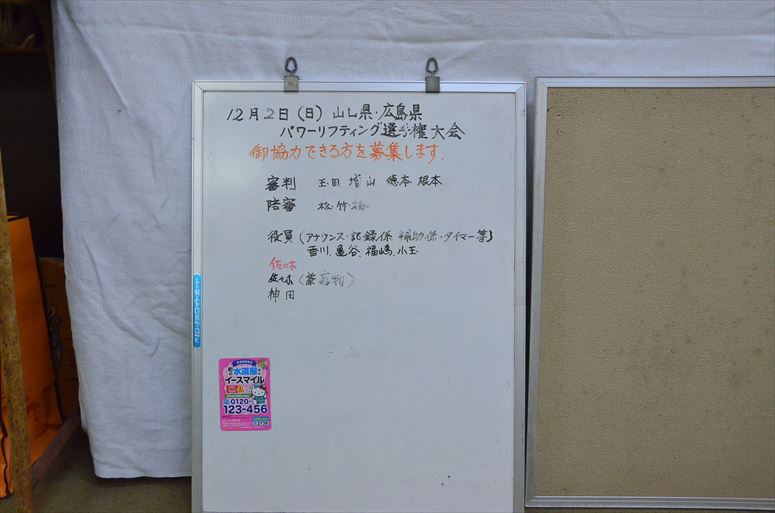 12月2日(日) 山し県・広島県
パワーリフティング選手権大会
御協力できる方を募集します
審判 玉田 増山 徳本 根本
陪審 松・竹・梅
役員(アナウンス・記録係 補助係・タイマー等)
香川、亀谷、福嶋、小玉
佐々木
佐々木(兼審判)
神田
水道屋
イースマイル
0120-
123-456